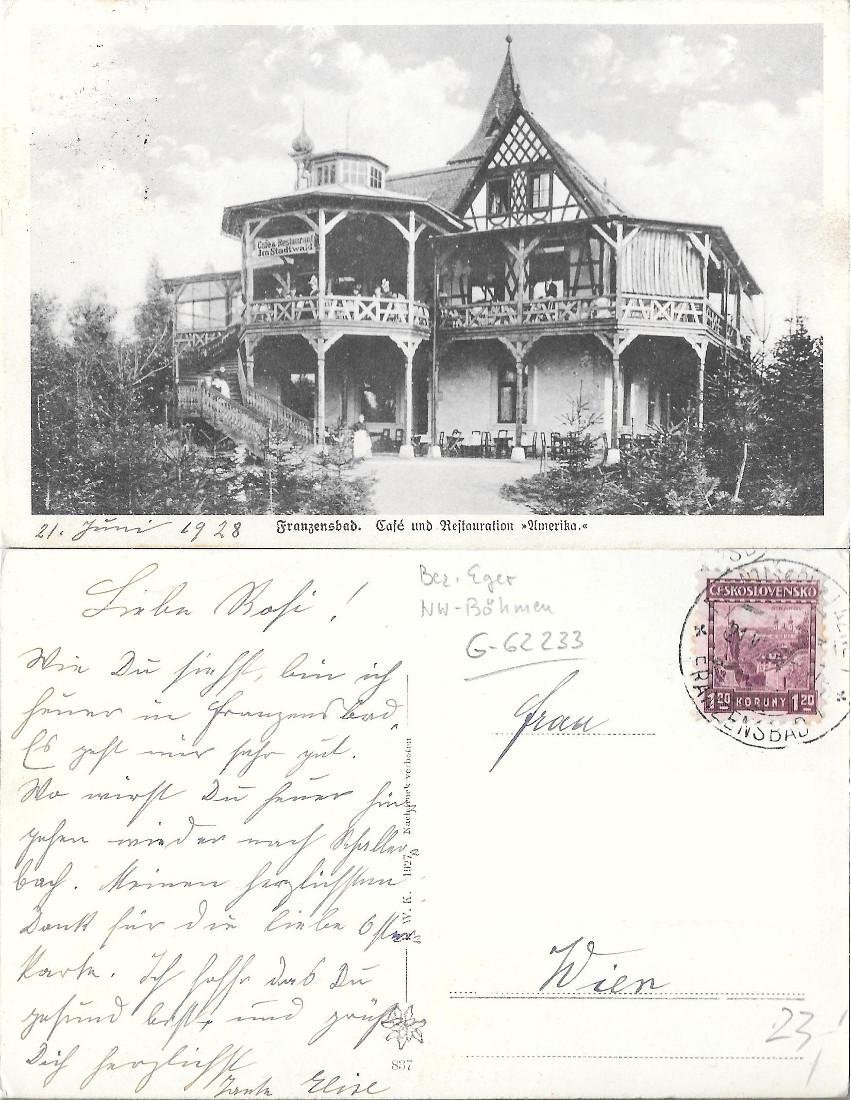 Café & Restaurant
Im Stadtwald
21. Juni 1928
Franzensbad. Café und Restauration »Amerika.«
Liebe Rosi!
Wie Du siehst, bin ich
heuer in Franzensbad,
Es geht mir sehr gut.
Wo wirst Du heuer hin
gehen wieder nach Schaller
bach. Meinen herzlichsten
Dank für die liebe Oster
karte. Ich hoffe das Du
gesund bist, und grüße
Dich herzlichst
Tante Elise
Bez. Eger
NW-Böhmen
G-62233
W. K. 1927. Nachdruck verboten
837
ČESKOSLOVENSKO
1.20 KORUNY 1.20
FRANZENSBAD
Frau
Wien
23,-